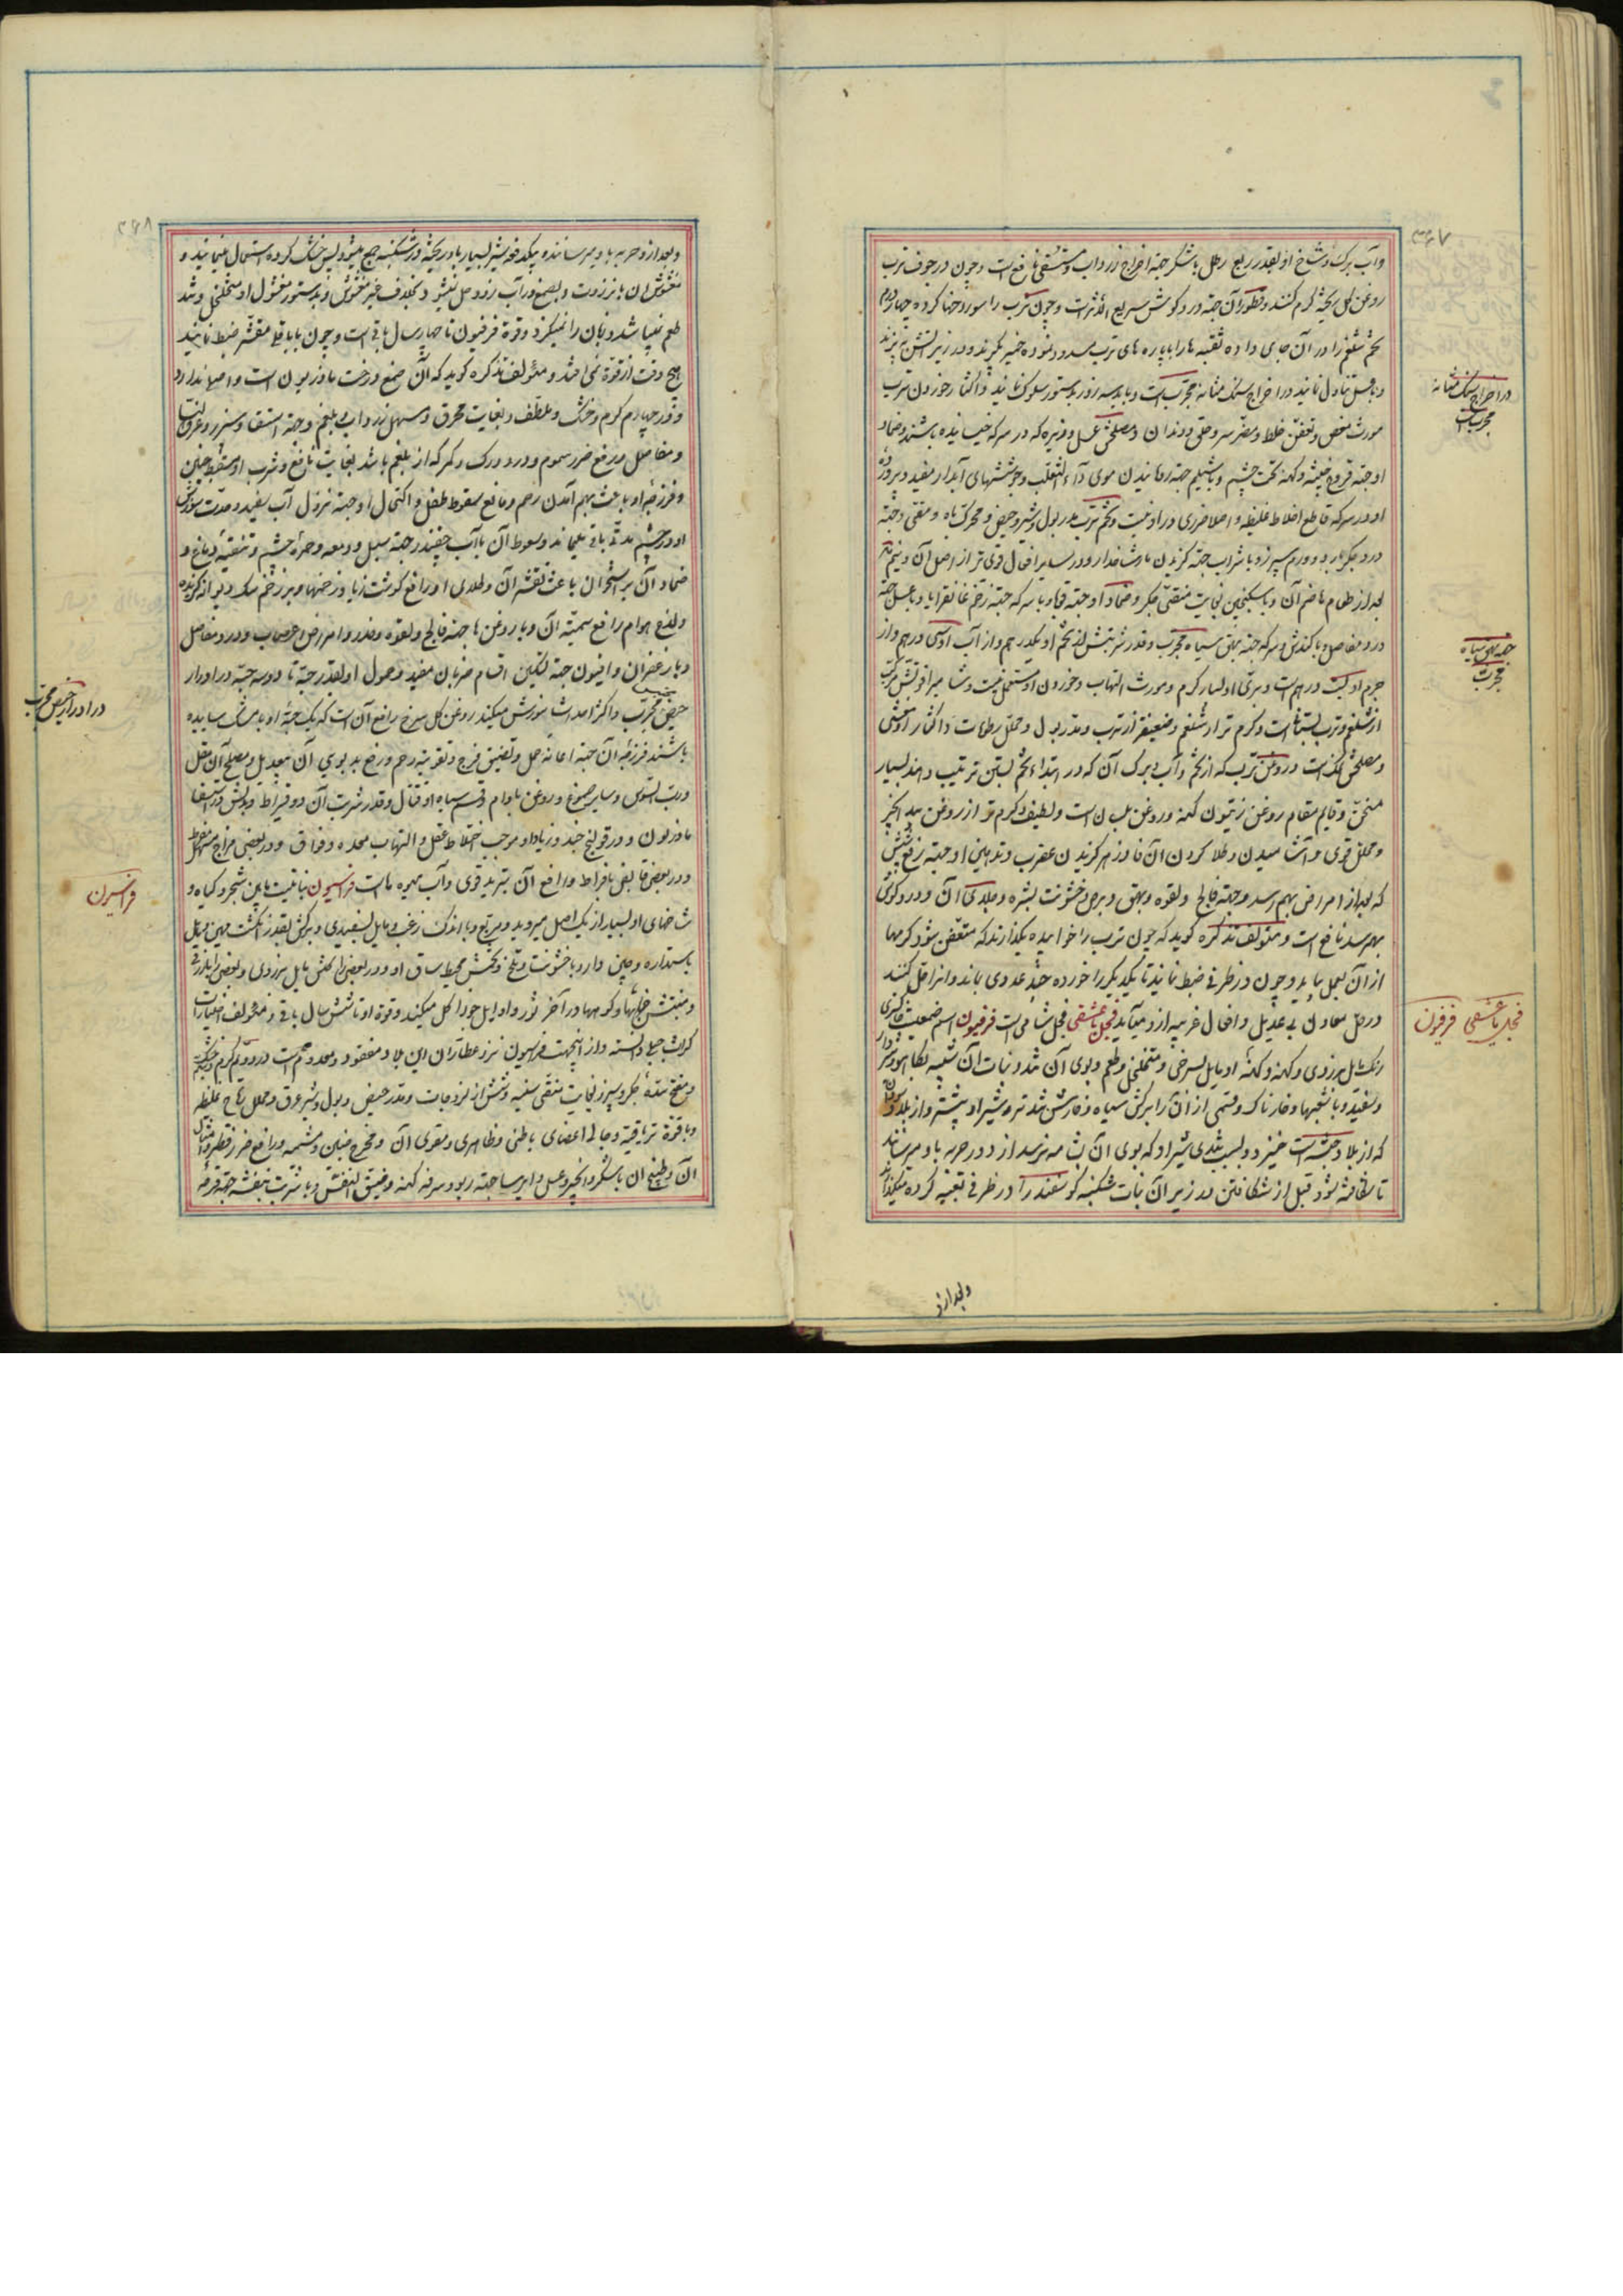 وآب برک و شاخ او بقدر ربع رطل با شکر جهة اخراج زرداب و مستسقی نافع است و چون در جوف ترب
روغن کل ریخته کرم کنند و قطور آن جهة درد کوش سریع الاثر است و چون ترب را سوراخها کرده چهار درم
تخم شلغم را در آن جای داده ثقبه ها را بپاره های ترب مسدود نموده خمیر کرفته و در زیر آتش بپزند
و با عسل تناول نمایند در اخراج سنک مثانه مجرب است و باید سه روز بدستور سلوک نمایند و اکثار خوردن ترب
مورث مغص و تعفن خلط و مضر سر و حلق و دندان و مصلحش عسل و زیره که در سرکه خیسانیده باشند و ضماد
او جهة قروح خبیثه و کهنه تحت چشم و با شیلم جهة رویانیدن موی داء الثعلب و جوششهای آبدار مفید و پرورده
او در سرکه قاطع اخلاط غلیظه و اصلا ضرری در او نیست و تخم ترب مدر بول و شیر و حیض و محرک باه و مقی و جهة
درد جکر بارد و ورم سپرز و با شراب جهة کزیدن مار شاخدار و در سایر افعال قوی تر از اصل آن و نیم درم
بعد از طعام هاضم آن و با سکنجبین بغایت منقی جکر و ضماد او جهة قوبا و با سرکه جهة زخم غانغرایا و با عسل جهة
درد مفاصل و با کندش و سرکه جهة بهق سیاه مجرب و قدر شربتش از تخم او یکدرهم و از آب او سی درهم و از
جرم او بیست درهم است و بری او بسیار کرم و مورث التهاب و خوردن او مستعمل نیست و شامی او قوتش مرکب
از شلغم و ترب بستانی است و کرم تر از شلغم و ضعیفتر از ترب و مدر بول و محلل رطوبات و اکثار او مغشی
و مصلحش نمک است و روغن ترب که از تخم و آب و برک آن که در ابتداء تخم بستن ترتیب دهند بسیار
مسخن و قایم مقام روغن زیتون کهنه و روغن بلسان است و لطیف و کرم تر از روغن بید انجیر
و محلل قوی و آشامیدن و طلا کردن آن فادزهر کزیدن عقرب و تدهین او جهة رفع شپش
که بعد از امراض بهم رسد و جهة فالج و لقوه و بهق و برص و خشونت بشره و طلای آن و درد کوش
بهم رسد نافع است و مؤلف تذکره کوید که چون ترب را خوابیده بکذارند که متعفن شود کرمها
از آن بعمل بیاید و چون در ظرفی ضبط نمایند تا یکدیکر را خورده حد عددی بماند و انرا حل کنند
در حل معادن بی عدیل و افعال غریبه از او میآید فجل عشقی فجل شامی است فرفیون اسم صمغیست خاکستری
رنک مایل بزردی و کهنه او مایل بسرخی و متخلخل و طعم و بوی آن تند و نبات آن شبیه بکاهو
و سفید و با شعبها و خارناک و قسمی از آن را برکش سیاه و خارش تند تر و شیر او بیشتر و از بلاد سودان
که از بلاد حبشه است خیزد و بسبب تندی شیر او که بوی آن بشامه نرسد از دور حربه باو میرسانند
تا شکافته شود قبل از شکافتن در زیر آن نبات شکنبه کوسفند را در ظرفی تعبیه کرده میکذارند
در اخراج سنک مثانه
مجرب است
جهة بهق سیاه
مجرب
فجل عشقی فرفیون
و بعد از و
و بعد از و حربه باو میرسانند و بیکدفعه شیر بسیار باو ریخته در شکنبه جمع میشود پس خشک کرده استعمال مینمایند و
مغشوش آن بانزروت و بصمغ در آب زود حل نمیشود بخلاف غیر مغشوش و بدستور مغشول او متخلخل و تند
طعم نمیباشد و زبان را نمیکزد و قوة فرفیون تا چهار سال باقی است و چون با باقلی مقشر ضبط نمایند
هیچ وقت از قوة نمی افتد و مؤلف تذکره کوید که آن صمغ درخت ماذریون است و اصلی ندارد
و در چهارم کرم و خشک و ملطف و بغایت محرق و مسهل زرداب و بلغم و جهة استسقا و سپرز و عرق النسا
و مفاصل و رفع ضرر سموم و درد ورک و کمر که از بلغم باشد بغایت نافع و شرب او مسقط جنین
و فرزجه او باعث بهم آمدن رحم و مانع سقوط طفل و اکتحال او جهة نزول آب سفید و مدت سوزش
او در چشم مدتی باقی میماند و سعوط آن باآب چغندر جهة سبل و دمعه و حمره چشم و تنقیه دماغ و
ضماد آن بر استخوان باعث تقشر آن و طلای او رافع کوشت زیاد زخمها و بر زخم سک دیوانه کزیده
و لدغ هوام رافع سمیته آن و با روغن ها جهة فالج و لقوه و خدر و امراض اعصاب و درد مفاصل
و با زعفران و افیون جهة تسکین اقسام ضربان مفید و حمول او بقدر حبة تا دو سه حبة در ادرار
حیض مجرب و اکثر احداث سوزش میکند روغن کل سرخ رافع آن است که یک حبة او با مشک ساییده
باشند فرزجه آن جهة اعانه حمل و تضییق فرج و تقویته رحم و رفع بد بوی آن بیعدیل و مصلح آن مقل
ورب السوس و سایر صموغ و روغن بادام و قسم سیاه او قتال و قدر شربت آن دو قیراط و بدلش در استسقا
ماذریون و در قولنج جند و زیاد او موجب اختلاط عقل و التهاب معده و فواق و در بعضی مزاج مسهل مفرط
و در بعضی قابض بافراط و رافع آن تبرید قوی و آب میوه ها است فراسیون نباتیست مابین شجر و کیاه و
شاخهای او بسیار از یک اصل میروید و مربع و با اندک زغب و مایل بسفیدی و برکش بقدر انکشت مهین و مایل
باستداره و چین دار و با خشونت و تلخ و تخمش محیط ساق او و در بعضی رنکش مایل بزردی و بعضی بازرقی
و منبتش خرابها و کوهها و در آخر ثور و اوایل جوزا کل میکند و قوة او تا شش سال باقی و مؤلف اختیارات
کراث جبلی دانسته و از اینجهت فراسیون نزد عطاران این بلاد مفقود و معدوم است در دویم کرم و خشک
و مفتح سده جکر و سپرز و بغایت منقی سینه و شش از لزوجات و مدر حیض و بول و شیر و عرق و محلل ریاح غلیظه
و با قوة تریاقیه و جالی اعضای باطنی و ظاهری و مقوی آن و مخرج جنین و مشیمه و رافع ضرر قطر و امثال
آن و طبیخ آن با شکر و انجیر و عسل و ایرسا جهة ربو و سرفه کهنه و ضیق النفس و با شربت بنفشه جهة قرحه
در ادرار حیض مجرب
فراسیون